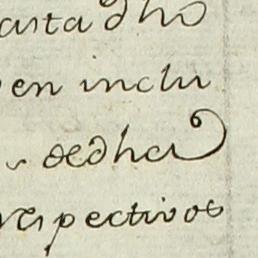 asta dho
en inclu
de dha
respectivos